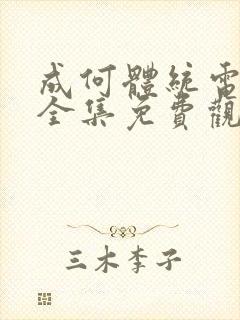 成何體統電
全集免費觀
三木李子